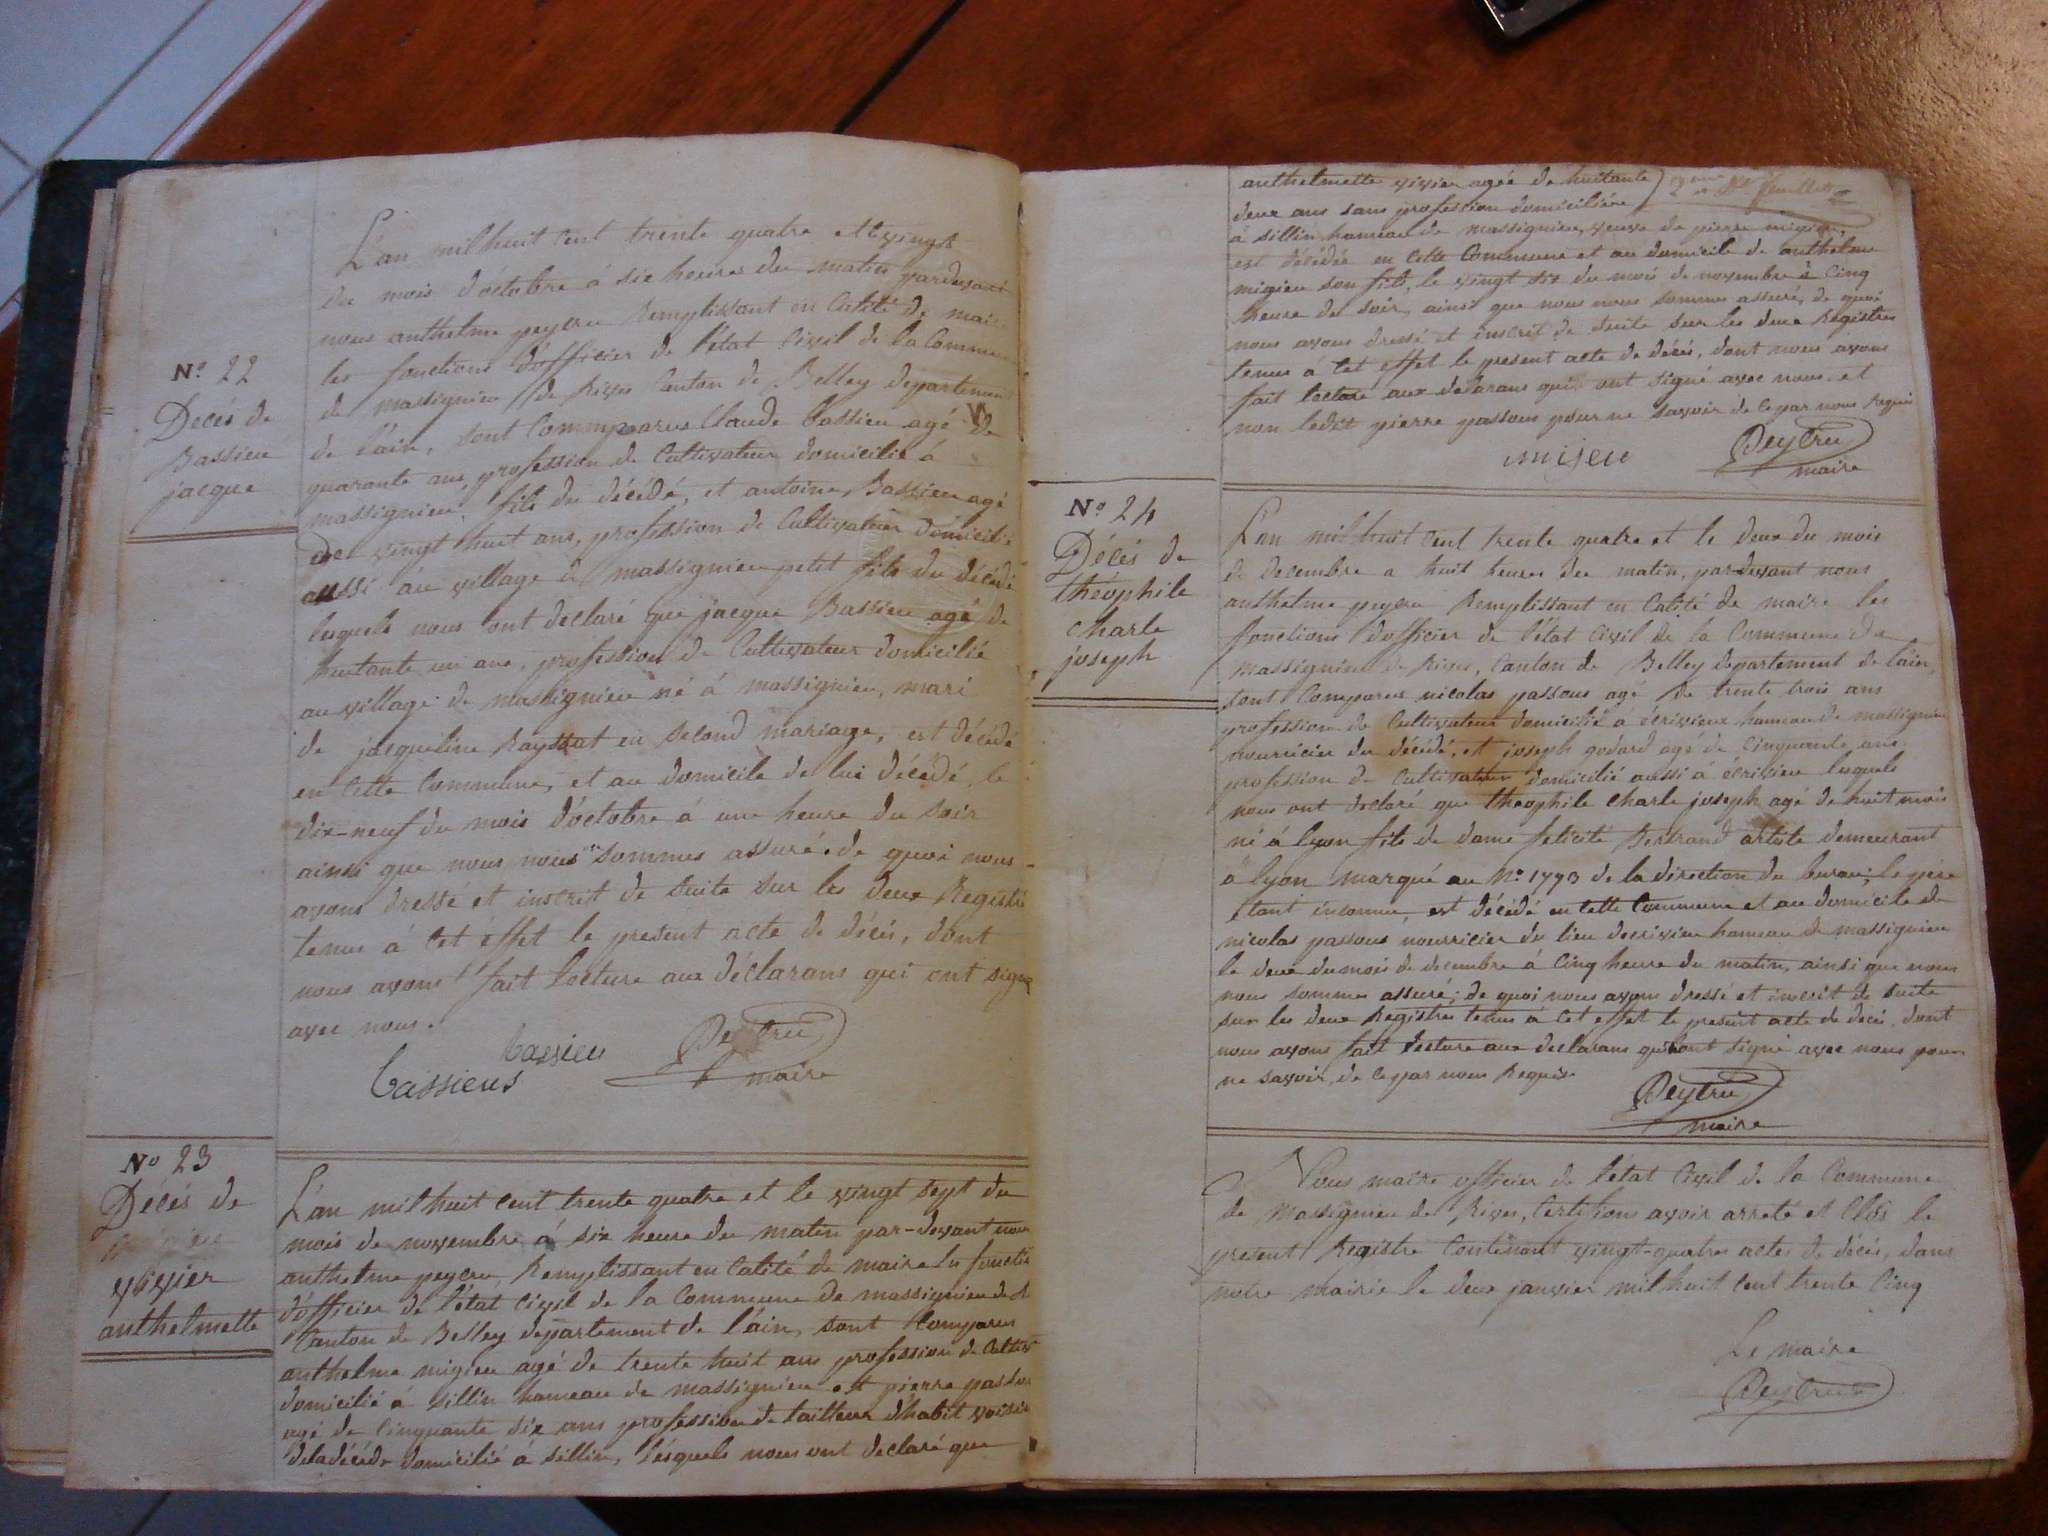 N.º 22
Décés de
Bassieu
jacque
L'an mil huit cent trente quatre et le vingt
du mois d'octobre à six heures du matin pardevant
nous anthelme peycru Remplissant en Calité de maire
les fonctions d'officier de l'état Civil de la Commune
de massignieu de Rives Canton de Belley departement
de l'ain, sont Comparus Claude Bassieu agé de
quarante ans, profession de Cultivateur domicilié à
massignieu, fils du décédé, et antoine Bassieu agé
de vingt huit ans, profession de Cultivateur domicilié
aussi au village de massignieu petit fils du décédé
lesquels nous ont declaré que jacque Bassieu agé de
huitante un ans, profession de Cultivateur domicilié
au village de massignieu né à massignieu, mari
de jacqueline Rayssat en second mariage, est décédé
en Cette Commune, et au domicile de lui décédé, le
dix-neuf du mois d'octobre à une heure du soir
ainsi que nous nous sommes assuré. de quoi nous
avons dressé et inscrit de suite sur les deux Registre
tenus à Cet éffet le présent acte de décès, dont
nous avons fait lecture aux déclarans qui ont signé
avec nous.
Bassieu
Peycru
Bassieus
maire
N.º 23
Décés de
vivier
anthelmette
L'an mil huit cent trente quatre et le vingt sept du
mois de novembre à six heure du matin par-devant nous
anthelme peycru, Remplissant en Calité de maire les fonctio
d'officier de l'état Civil de la Commune de massignieu de
Canton de Belley departement de l'ain, sont Comparus
anthelme migieu agé de trente huit ans profession de Cultiv
domicilié à sillin hameau de massignieu et pierre passou
agé de Cinquante six ans profession de tailleur d'habit voisin
de la décédé domicilié à sillin, lesquels nous ont declaré que
anthelmette vivier agée de huitante
deux ans sans profession domiciliére
à sillin hameau de massignieu, veuve de pierre migieu,
est décédée en Cette Commune et au domicile de anthelme
migieu son fils, le vingt six du mois de novembre à Cinq
heure du soir, ainsi que nous nous sommes assuré, de quoi
nous avons dressé et inscrit de suite sur les deux Registres
tenus à Cet effet le present acte de décés, dont nous avons
fait lecture aux declarans qui ont signé avec nous et
non ledit pierre passous pour ne savoir de ce par nous Requis
mijeu
Peycru
maire
N.º 24
Décés de
théophile
charle
joseph
L'an mil huit Cent trente quatre et le deux du mois
de decembre a huit heures du matin, pardevant nous
anthelme peycru Remplissant en Calité de maire les
fonctions d'officier de l'état Civil de la Commune de
massignieu de Rives, Canton de Belley departement de l'ain,
sont Comparus nicolas passous agé de trente trois ans
profession de Cultivateur domicilié à écrivieux hameau de massignieu
nourricier du décédé, et joseph godard agé de Cinquante ans
profession de Cultivateur domicilié aussi à écrivieu lesquels
nous ont declaré que théophile charle joseph agé de huit mois
né à lyon fils de dame felicité Bertrand artiste demeurant
à lyon marqué au N.º 1793 de la direction du bureau, le père
étant inconnu, est décédé en Cette Commune et au domicile de
nicolas passous nourricier du lieu decrivieu hameau de massignieu
le deux du mois de decembre à Cinq heure du matin, ainsi que nous
nous sommes assuré; de quoi nous avons dressé et inscrit de suite
sur les deux Registres tenus à Cet effet le présent acte de décés, dont
nous avons fait lecture aux declarans qui ont signé avec nous pour
ne savoir, de ce par nous Requis
Peycru
maire
Nous maire officier de l'état Civil de la Commune
de Massignieu de Rives, Certifions avoir arreté et Clos le
present Registre Contenant vingt-quatre actes de décés, dans
notre mairie le deux janvier mil huit Cent trente Cinq
Le maire
Peycru